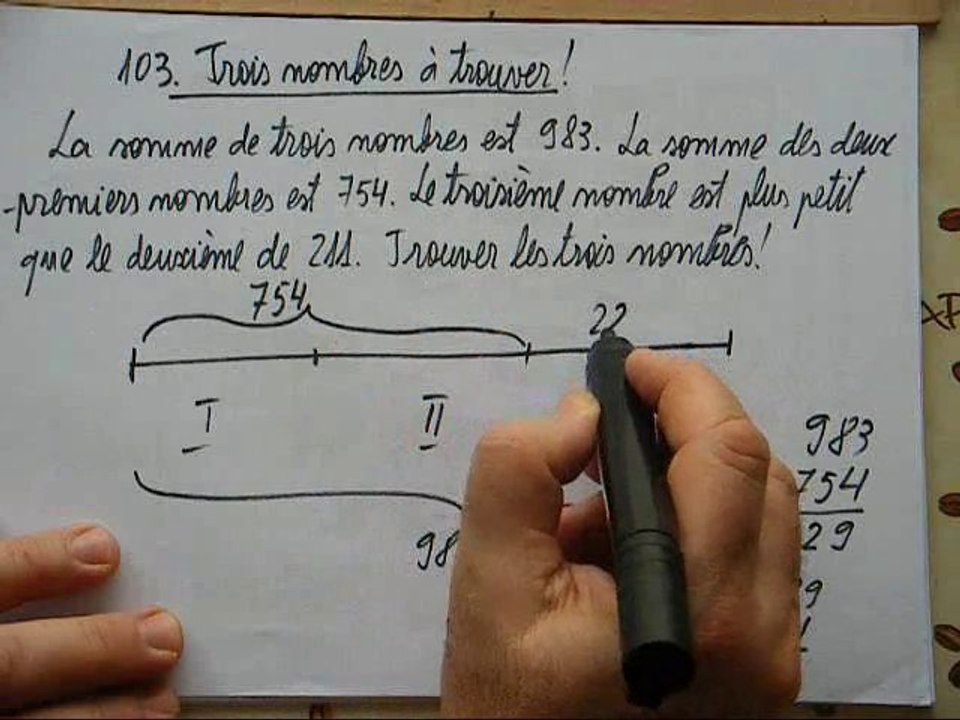 103. Trois nombres à trouver!
La somme de trois nombres est 983. La somme des deux
premiers nombres est 754. Le troisième nombre est plus petit
que le deuxième de 211. Trouver les trois nombres!
754
22
I II
983
754
29
98
9